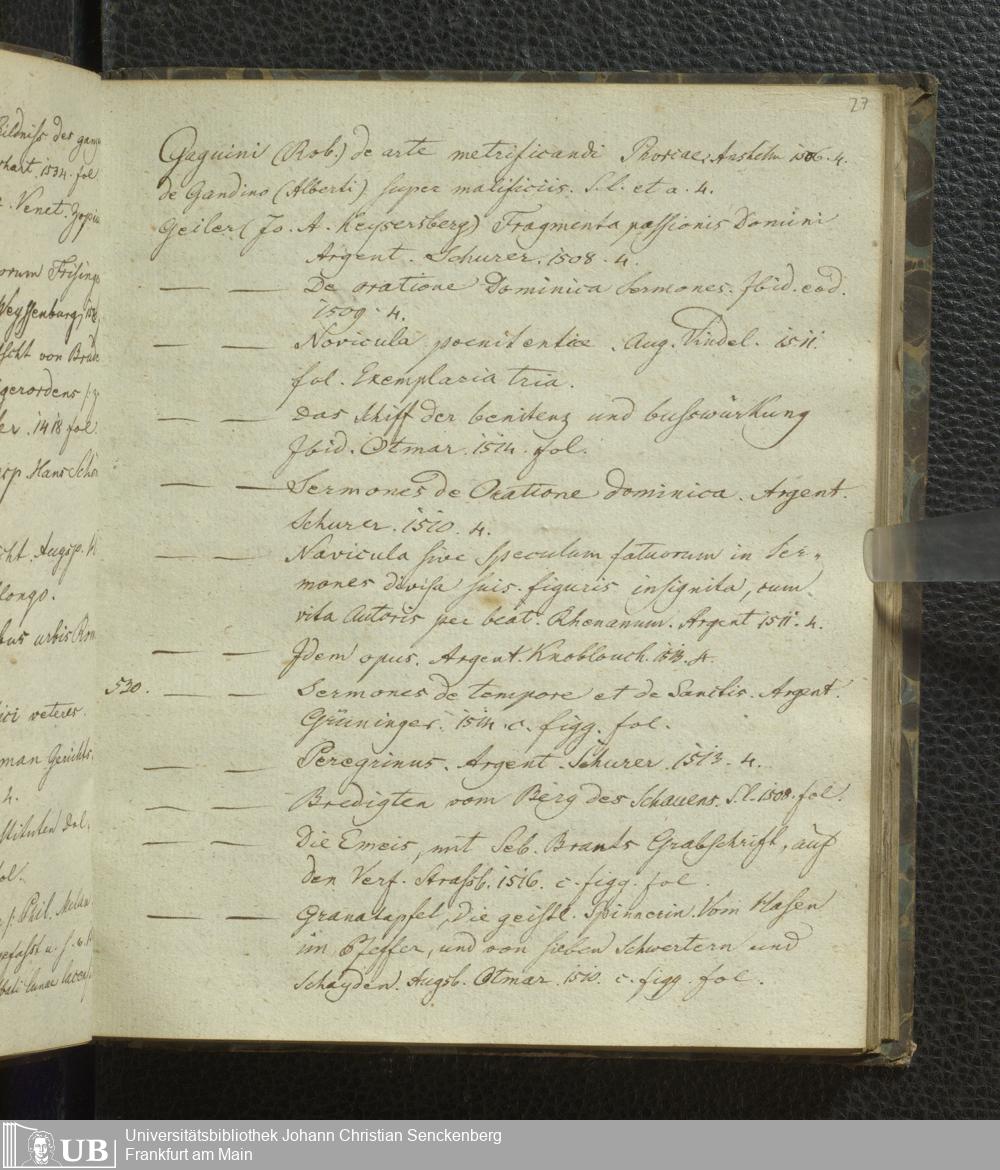 ildniss des gang
rhart. 1534. fol
Venet. Zopin
orum Frising
Weyssenburg, 15
scht von Brud
gerordens
er. 1418 fol
sp. Hans Schön
cht. Augsp.
longo.
bus urbis Rom
ici veteres.
man Gerichts
4.
stituten
ol.
Phil. Melan
27
Gaguini (Rob.) de arte metrificandi Phorcae, Anshelm 1506. 4.
de Gandino (Alberti) super maleficiis. S. l. et a. 4.
Geiler (Jo. A. Keysersberg) Fragmenta passionis Domini
Argent. Schurer. 1508. 4.
— — De oratione Dominica Sermones. Ibid. eod.
1509. 4.
— — Navicula poenitentiae. Aug. Vindel. 1511.
fol. Exemplaria tria.
— — das Schiff der benitenz und busswürkung
Ibid. Otmar. 1514. fol.
— — Sermones de Oratione dominica. Argent.
Schurer. 1510. 4.
— — Navicula sive Speculum fatuorum in Ser-
mones divisa suis figuris insignita, cum
vita Autoris per beat. Rhenanum. Argent 1511. 4.
— — Idem opus. Argent. Knoblouch. 1513. 4.
530. — — Sermones de tempore et de Sanctis. Argent.
Grüninger. 1514. c. figg. fol.
— — Peregrinus. Argent. Schurer. 1513. 4.
— — Bredigten vom Berg des Schauens. S. l. 1508. fol.
— — Die Emeis, mit Seb. Brants Grabschrift, auf
den Verf. Strassb. 1516. c. figg. fol.
— — Granatapfel, die geistl. Spinnerin. Vom Hasen
im Pfeffer, und von sieben Schwertern und
Schayden. Augsb. Otmar. 1510. c. figg. fol.
UB
Universitätsbibliothek Johann Christian Senckenberg
Frankfurt am Main